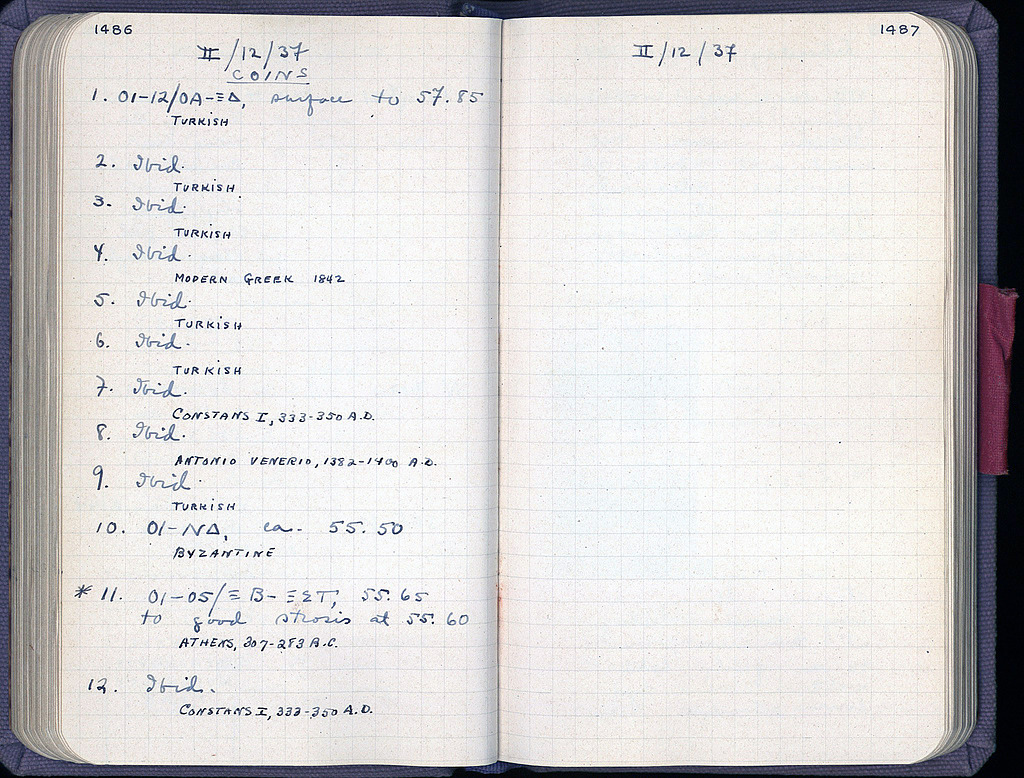 1486
II/12/37
COINS
1. ΟΙ-12/ΟΑ-ΞΔ, surface to 57.85
TURKISH
2. Ibid.
TURKISH
3. Ibid.
TURKISH
4. Ibid.
MODERN GREEK 1842
5. Ibid.
TURKISH
6. Ibid.
TURKISH
7. Ibid.
CONSTANS I, 333-350 A.D.
8. Ibid.
ANTONIO VENERIO, 1382-1400 A.D.
9. Ibid.
TURKISH
10. ΟΙ-ΝΔ, ca. 55.50
BYZANTINE
* 11. ΟΙ-05/ΞΒ-ΞΣΤ, 55.65
to good strosis at 55.60
ATHENS, 307-283 B.C.
12. Ibid.
CONSTANS I, 333-350 A.D.
1487
II/12/37